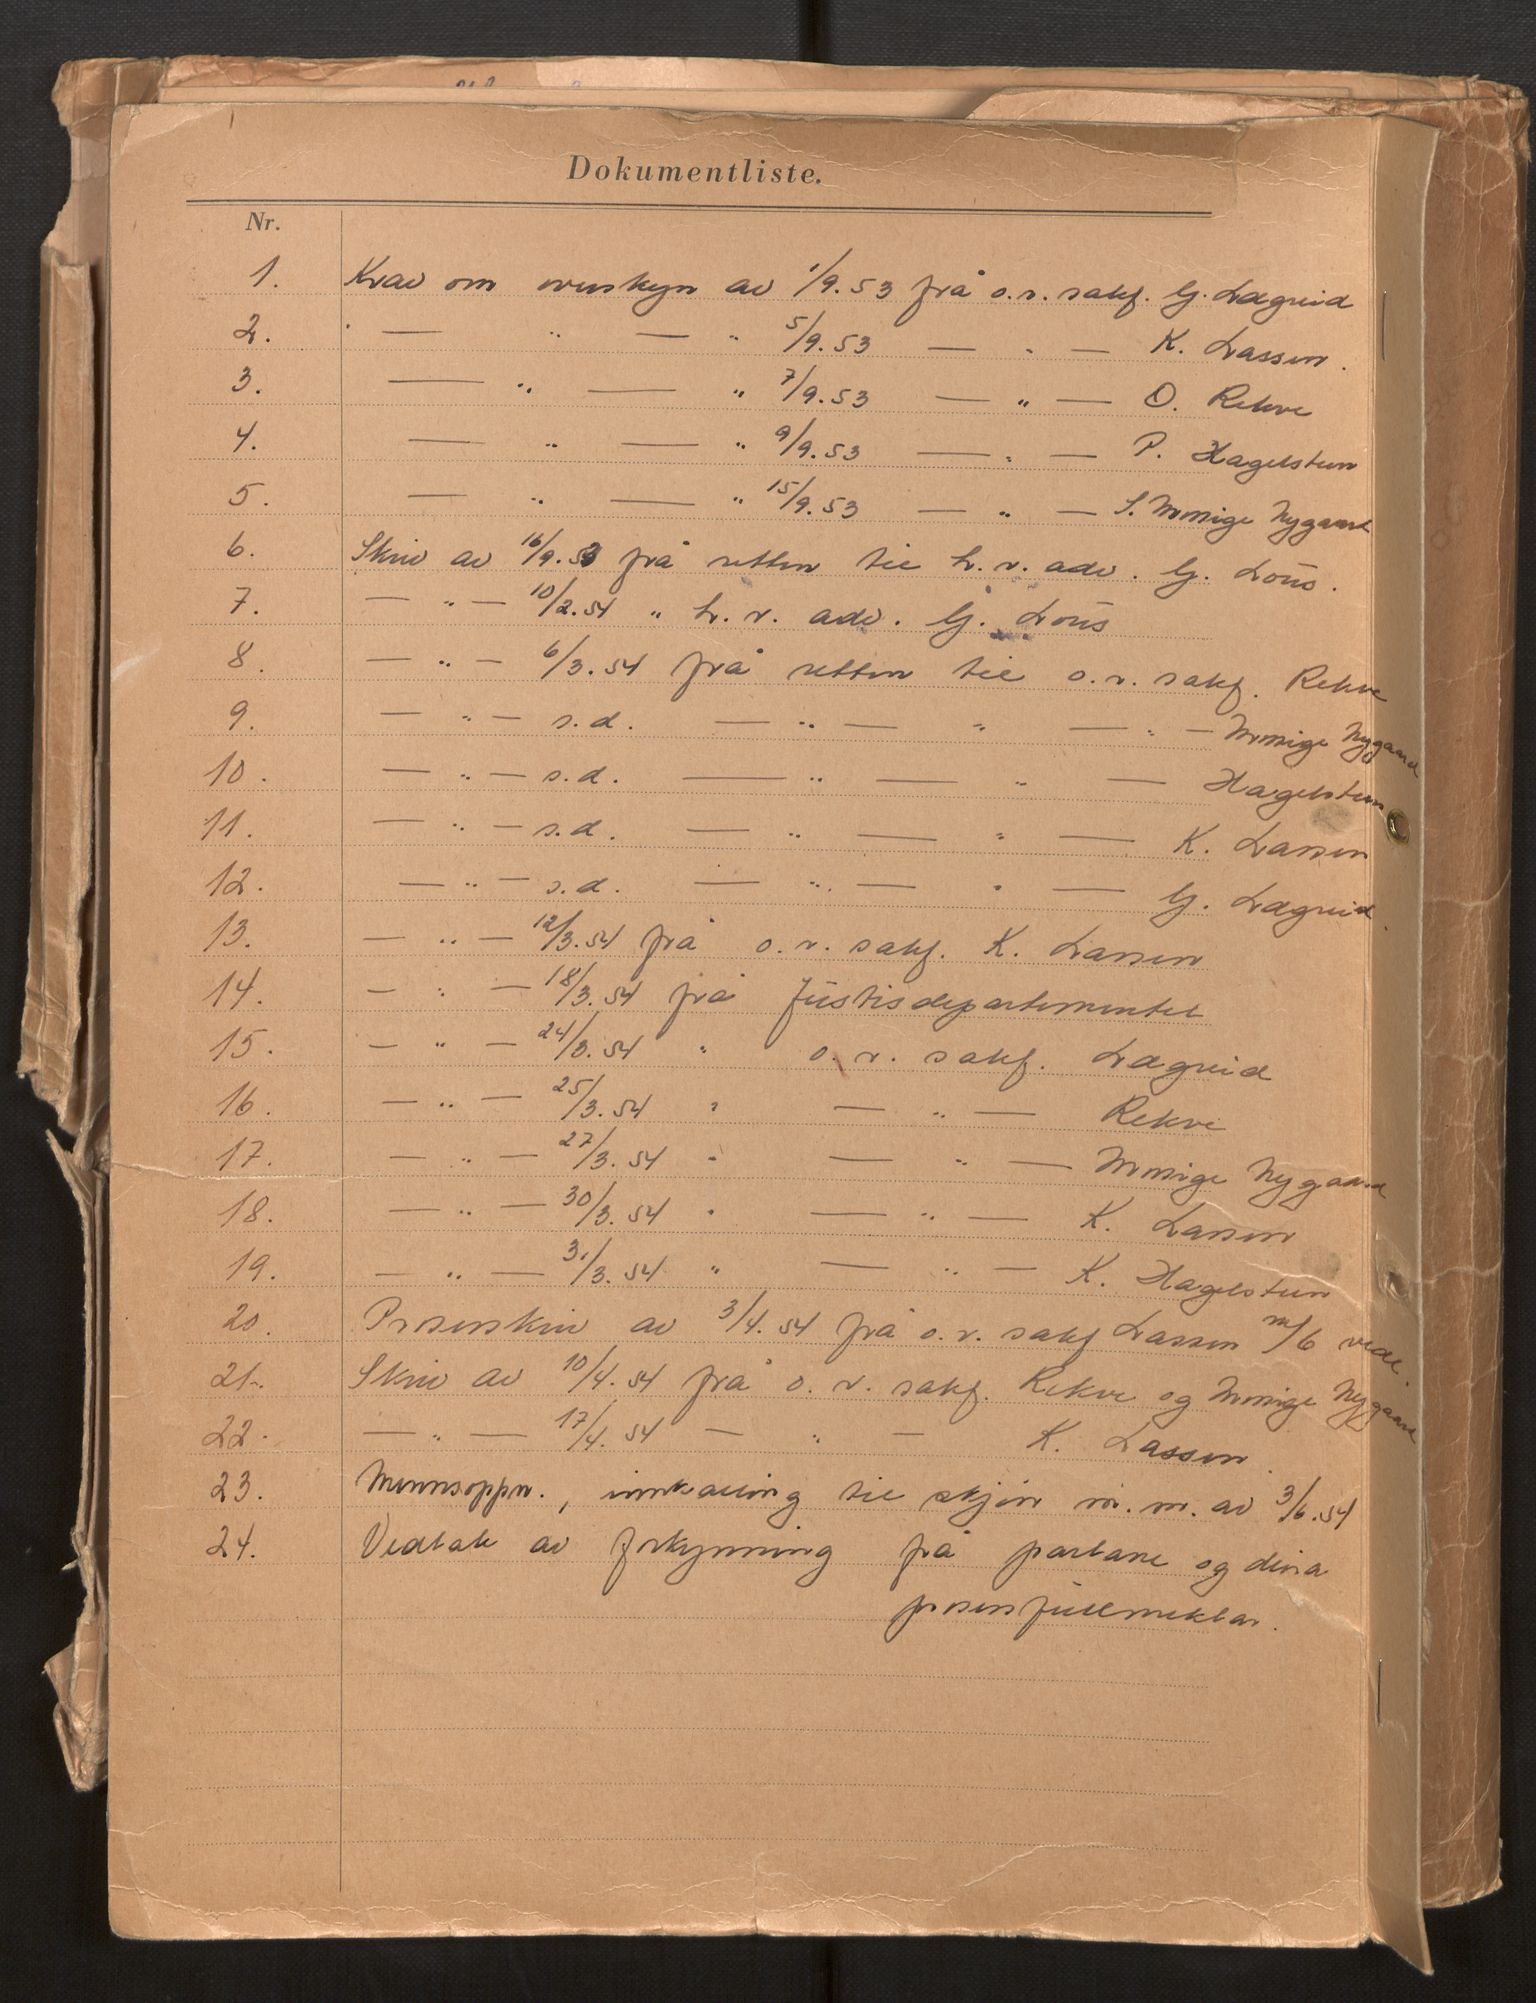 Dokumentliste.
Nr.
1. Krav om overskyn av 1/9.53 frå o.r.sakf. G. Lægreid
2. — " — " 5/9.53 — " — K. Lassen.
3. — " — " 7/9.53 — " — O. Rekve
4. — " — " 9/9.53 — " — P. Hagelsteen
5. — " — " 15/9.53 — " — S. Monige Nygaard
6. Skriv av 16/9.53 frå retten til h.r.adv. G. Loüs.
7. — " — 10/2.54 " h.r. adv. G. Loüs
8. — " — 6/3.54 frå retten til o.r.sakf. Rekve
9. — " — s.d. — " — " — " — Monige Nygaard
10. — " — s.d. — " — " — Hagelsteen
11. — " — s.d. — " — " — K. Lassen
12. — " — s.d. — " — " — G. Lægreid
13. — " — 12/3.54 frå o.r.sakf. K. Lassen
14. — " — 18/3.54 frå Justisdepartementet
15. — " — 24/3.54 " o.r. sakf. Lægreid
16. — " — 25/3.54 " — " — Rekve
17. — " — 27/3.54 " — " — Monige Nygaard
18. — " — 30/3.54 " — " — K. Lassen
19. — " — 31/3.54 " — " — K. Hagelsteen
20. Prosesskriv av 3/4.54 frå o.r. sakf Lassen m/6 vedl.
21. Skriv av 10/4.54 frå o.r. sakf. Rekve og Monige Nygaard
22. — " — 17/4.54 — " — K. Lassen
23. Mennsoppn., innkalling til skjön m.m. av 3/6.54
24. Vedtak av forkynning frå partane og deira
prosessfullmektar.